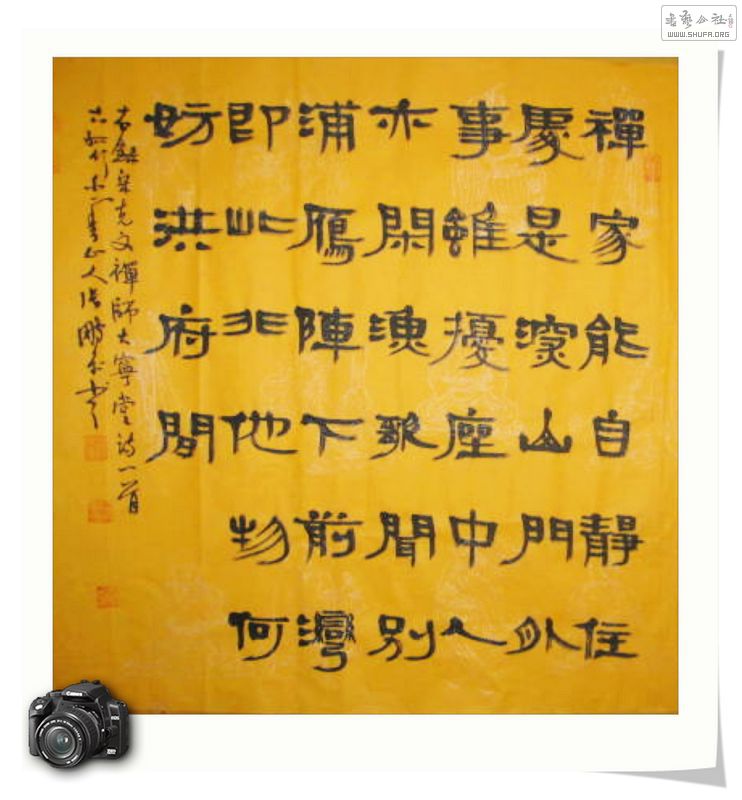 禪家能自靜住
處是深山門外
事雖擾座中人
亦閑漁歌聞別
浦雁陣下前灣
即此非他物何
妨洪府間
右錄宋克文禪師大寧堂詩一首
书艺公社
WWW.SHUFA.ORG
Canon